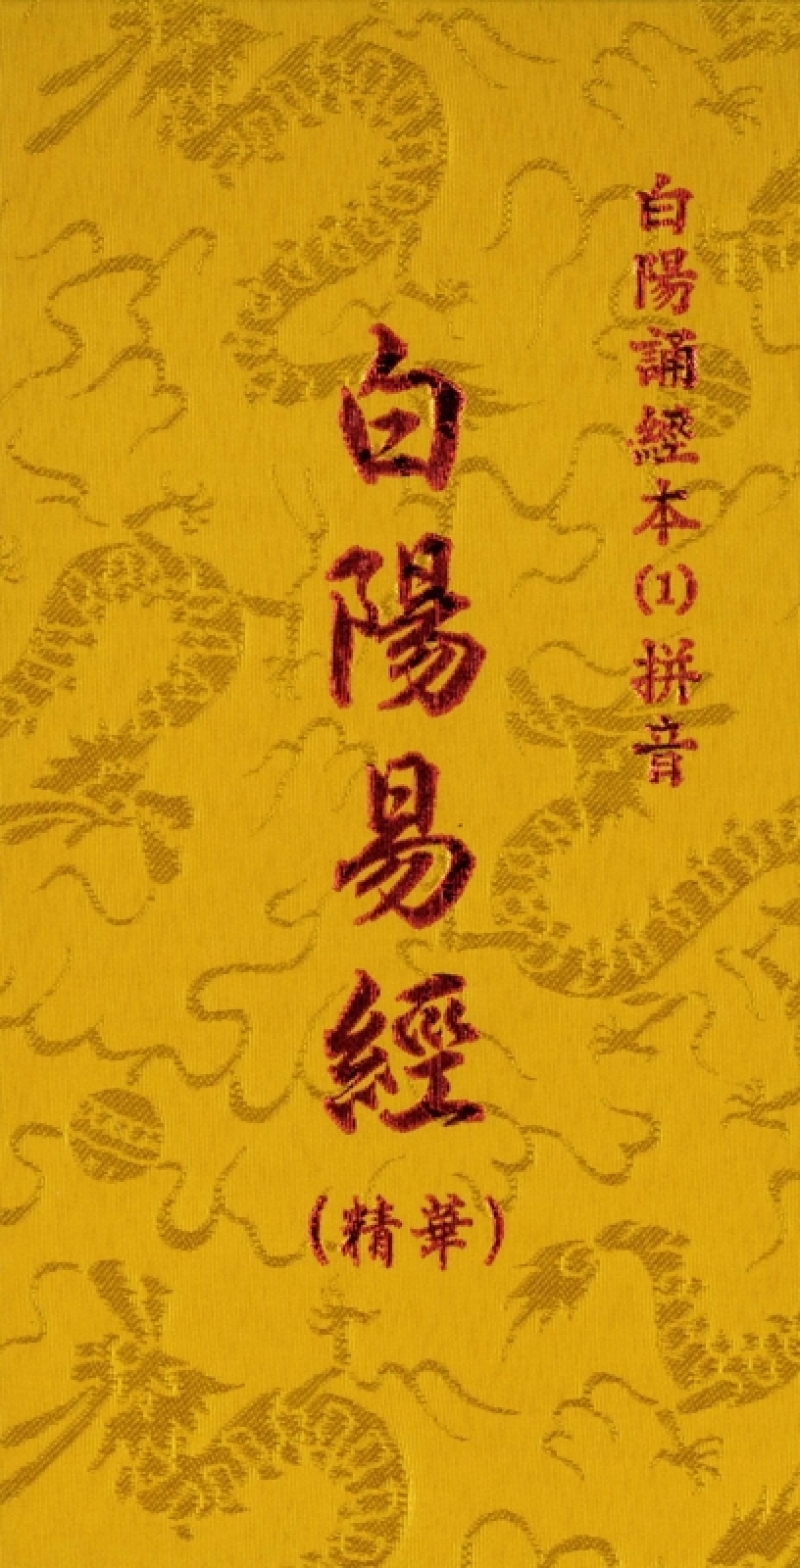 白陽誦經本(1)拼音
白陽易經
(精華)